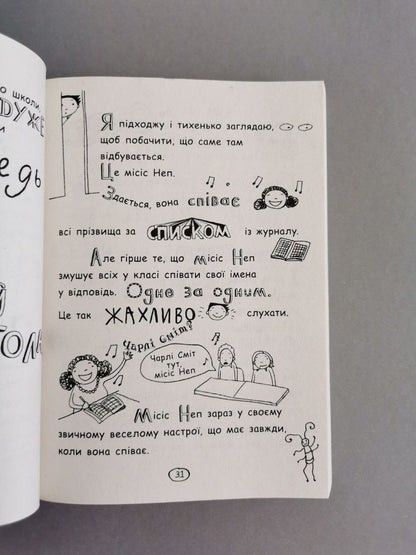 о школи.
ДУЖЕ
и
едь
Й
ТОЛИ
Я підходжу і тихенько заглядаю,
щоб побачити, що саме там
відбувається.
Це місіс Неп.
Здається, вона співає
всі прізвища за СПИСКОМ із журналу.
Але гірше те, що місіс Неп
змушує всіх у класі співати свої імена
у відповідь. Одне за одним.
Це так ЖАХЛИВО слухати.
Чарлі Сміт?
Чарлі Сміт
тут,
місіс Неп
Місіс Неп зараз у своєму
звичному веселому настрої, що має завжди,
коли вона співає.
31